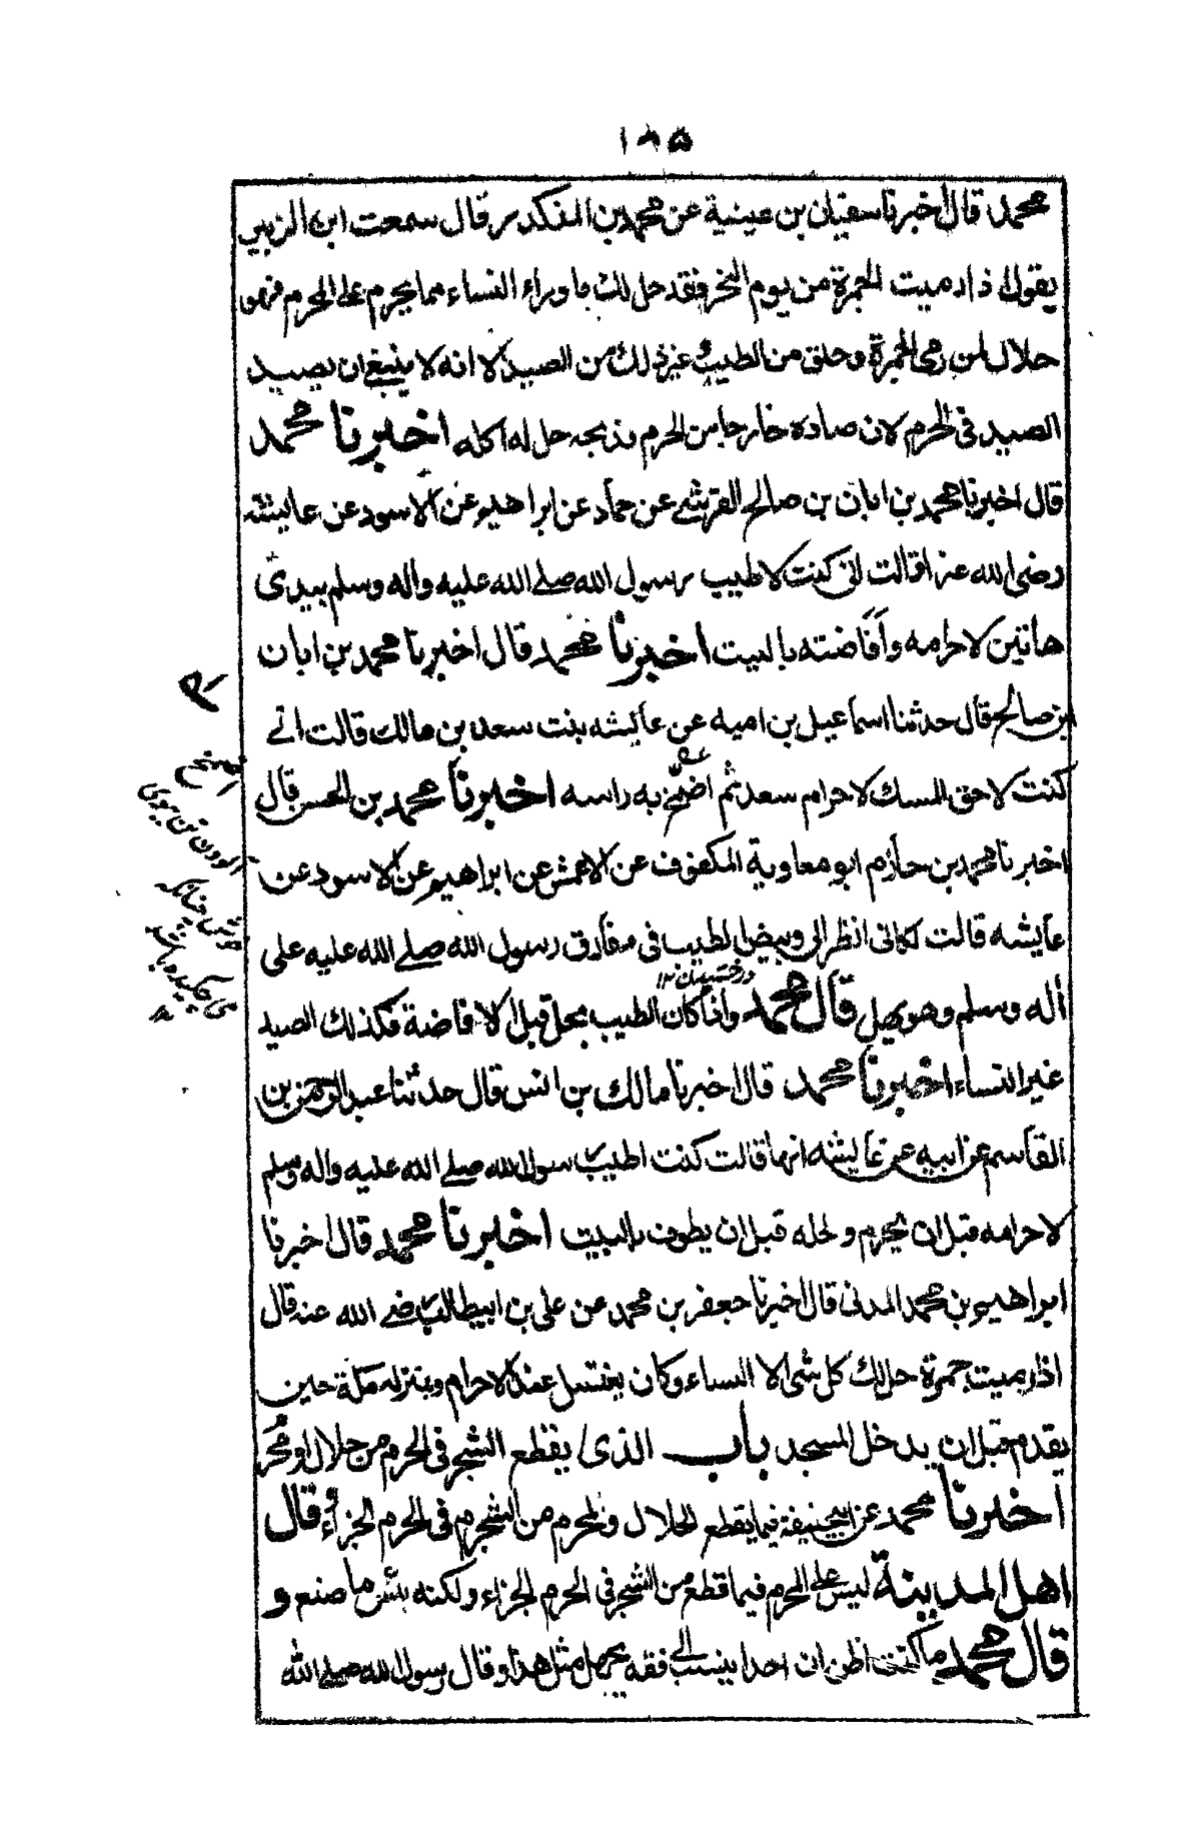 ١٨٥
محمد قال اخبرنا سفيان بن عينية عن محمد بن المنكدر قال سمعت ابن الزبير
يقول اذا رميت الجمرة من يوم النحر فقد حل لك ما وراء النساء مما يحرم على المحرم فهو
حلال لمن رمى الجمرة وحلق من الطيب وغير ذلك من الصيد الا انه لا ينبغي ان يصيد
الصيد في الحرم لان صاده خارجا من الحرم فذبحه حل له اكله اخبرنا محمد
قال اخبرنا محمد بن ابان بن صالح القرشي عن حماد عن ابراهيم عن الاسود عن عايشة
رضى الله عنها قالت انى كنت لاطيب رسول الله صلى الله عليه واله وسلم بيدى
هاتين لاحرامه وافاضته بالبيت اخبرنا محمد قال اخبرنا محمد بن ابان
بن صالح قال حدثنا اسماعيل بن اميه عن عايشه بنت سعد بن مالك قالت انى
كنت لاحق المسك لاحرام سعد ثم اضمخ به راسه اخبرنا محمد بن الحسن قال
اخبرنا محمد بن حازم ابو معاوية المكفوف عن الاعمش عن ابراهيم عن الاسود عن
عايشه قالت لكانى انظر الى وبيض الطيب في مفارق رسول الله صلى الله عليه على
درخشيدن ١٢
اله وسلم وهو يهل قال محمد واذا كان الطيب يحل قبل الافاضة فكذلك الصيد
غير النساء اخبرنا محمد قال اخبرنا مالك بن انس قال حدثنا عبد الرحمن بن
القاسم عن ابيه عن عايشه انها قالت كنت اطيب رسول الله صلى الله عليه واله وسلم
لاحرامه قبل ان يحرم ولحله قبل ان يطوف بالبيت اخبرنا محمد قال اخبرنا
ابراهيم بن محمد المدنى قال اخبرنا جعفر بن محمد عن على بن ابيطالب رضى الله عنه قال
اذا رميت جمرة حل لك كل شى الا النساء وكان يغتسل عند الاحرام وبنزله مكة حين
يقدم قبل ان يدخل المسجد باب الذى يقطع الشجر في الحرم من حلال او محرم
اخبرنا محمد عن ابي حنيفة فيما يقطع الحلال والمحرم من الشجر في الحرم الجزاء قال
اهل المدينة ليس على المحرم فيما قطع من الشجر في الحرم الجزاء ولكنه بئس ما صنع و
قال محمد ما كنت اظن ان احدا ينسب الى فقه يجهل مثل هذا وقال رسول الله صلى الله